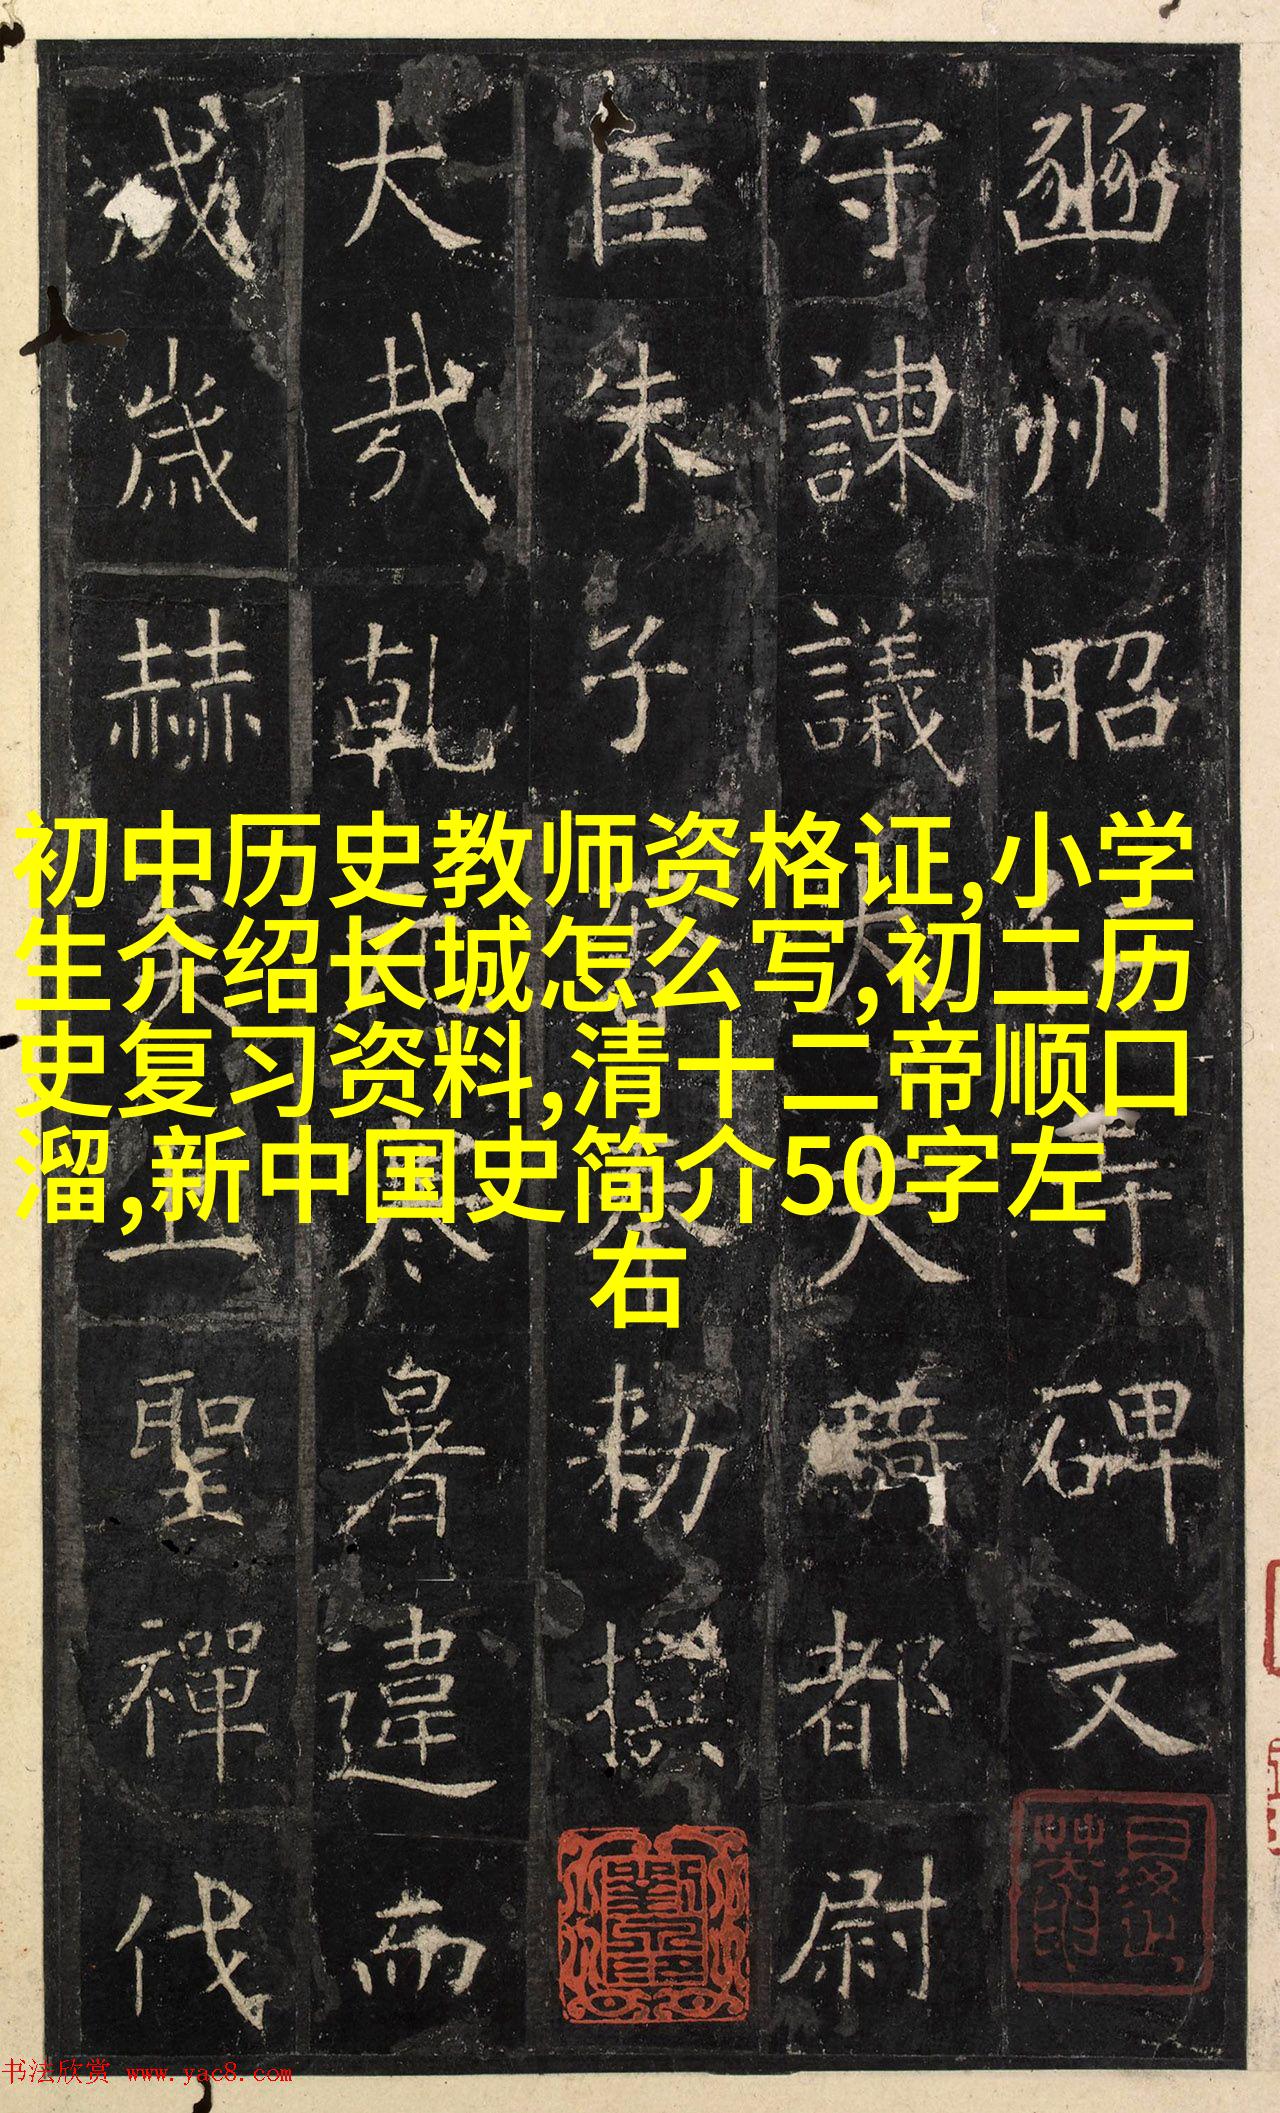 豳州昭仁寺碑文
守諫議大夫騎都尉
臣朱子奢奉勑撰
大哉乾元寒暑違而
成歲赫矣上聖禪代
初中历史教师资格证,小学
生介绍长城怎么写,初二历
史复习资料,清十二帝顺口
溜,新中国史简介50字左
右
书法欣赏 www.yac8.com